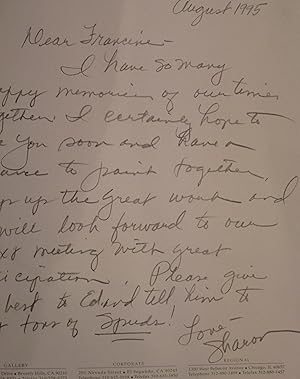 August 1995
Dear Francine -
I have so many
appy memories of our times
gether. I certainly hope to
e you soon and have a
ance to paint together,
p up the great work and
will look forward to our
xt meeting with great
icipation. Please give
best to Ed and tell him to
t tons of Spuds!
Love -
Sharon
GALLERY
Drive • Beverly Hills, CA 90210
CORPORATE
Nevada Street • El Segundo, CA 90245
REGIONAL
Chicago, IL